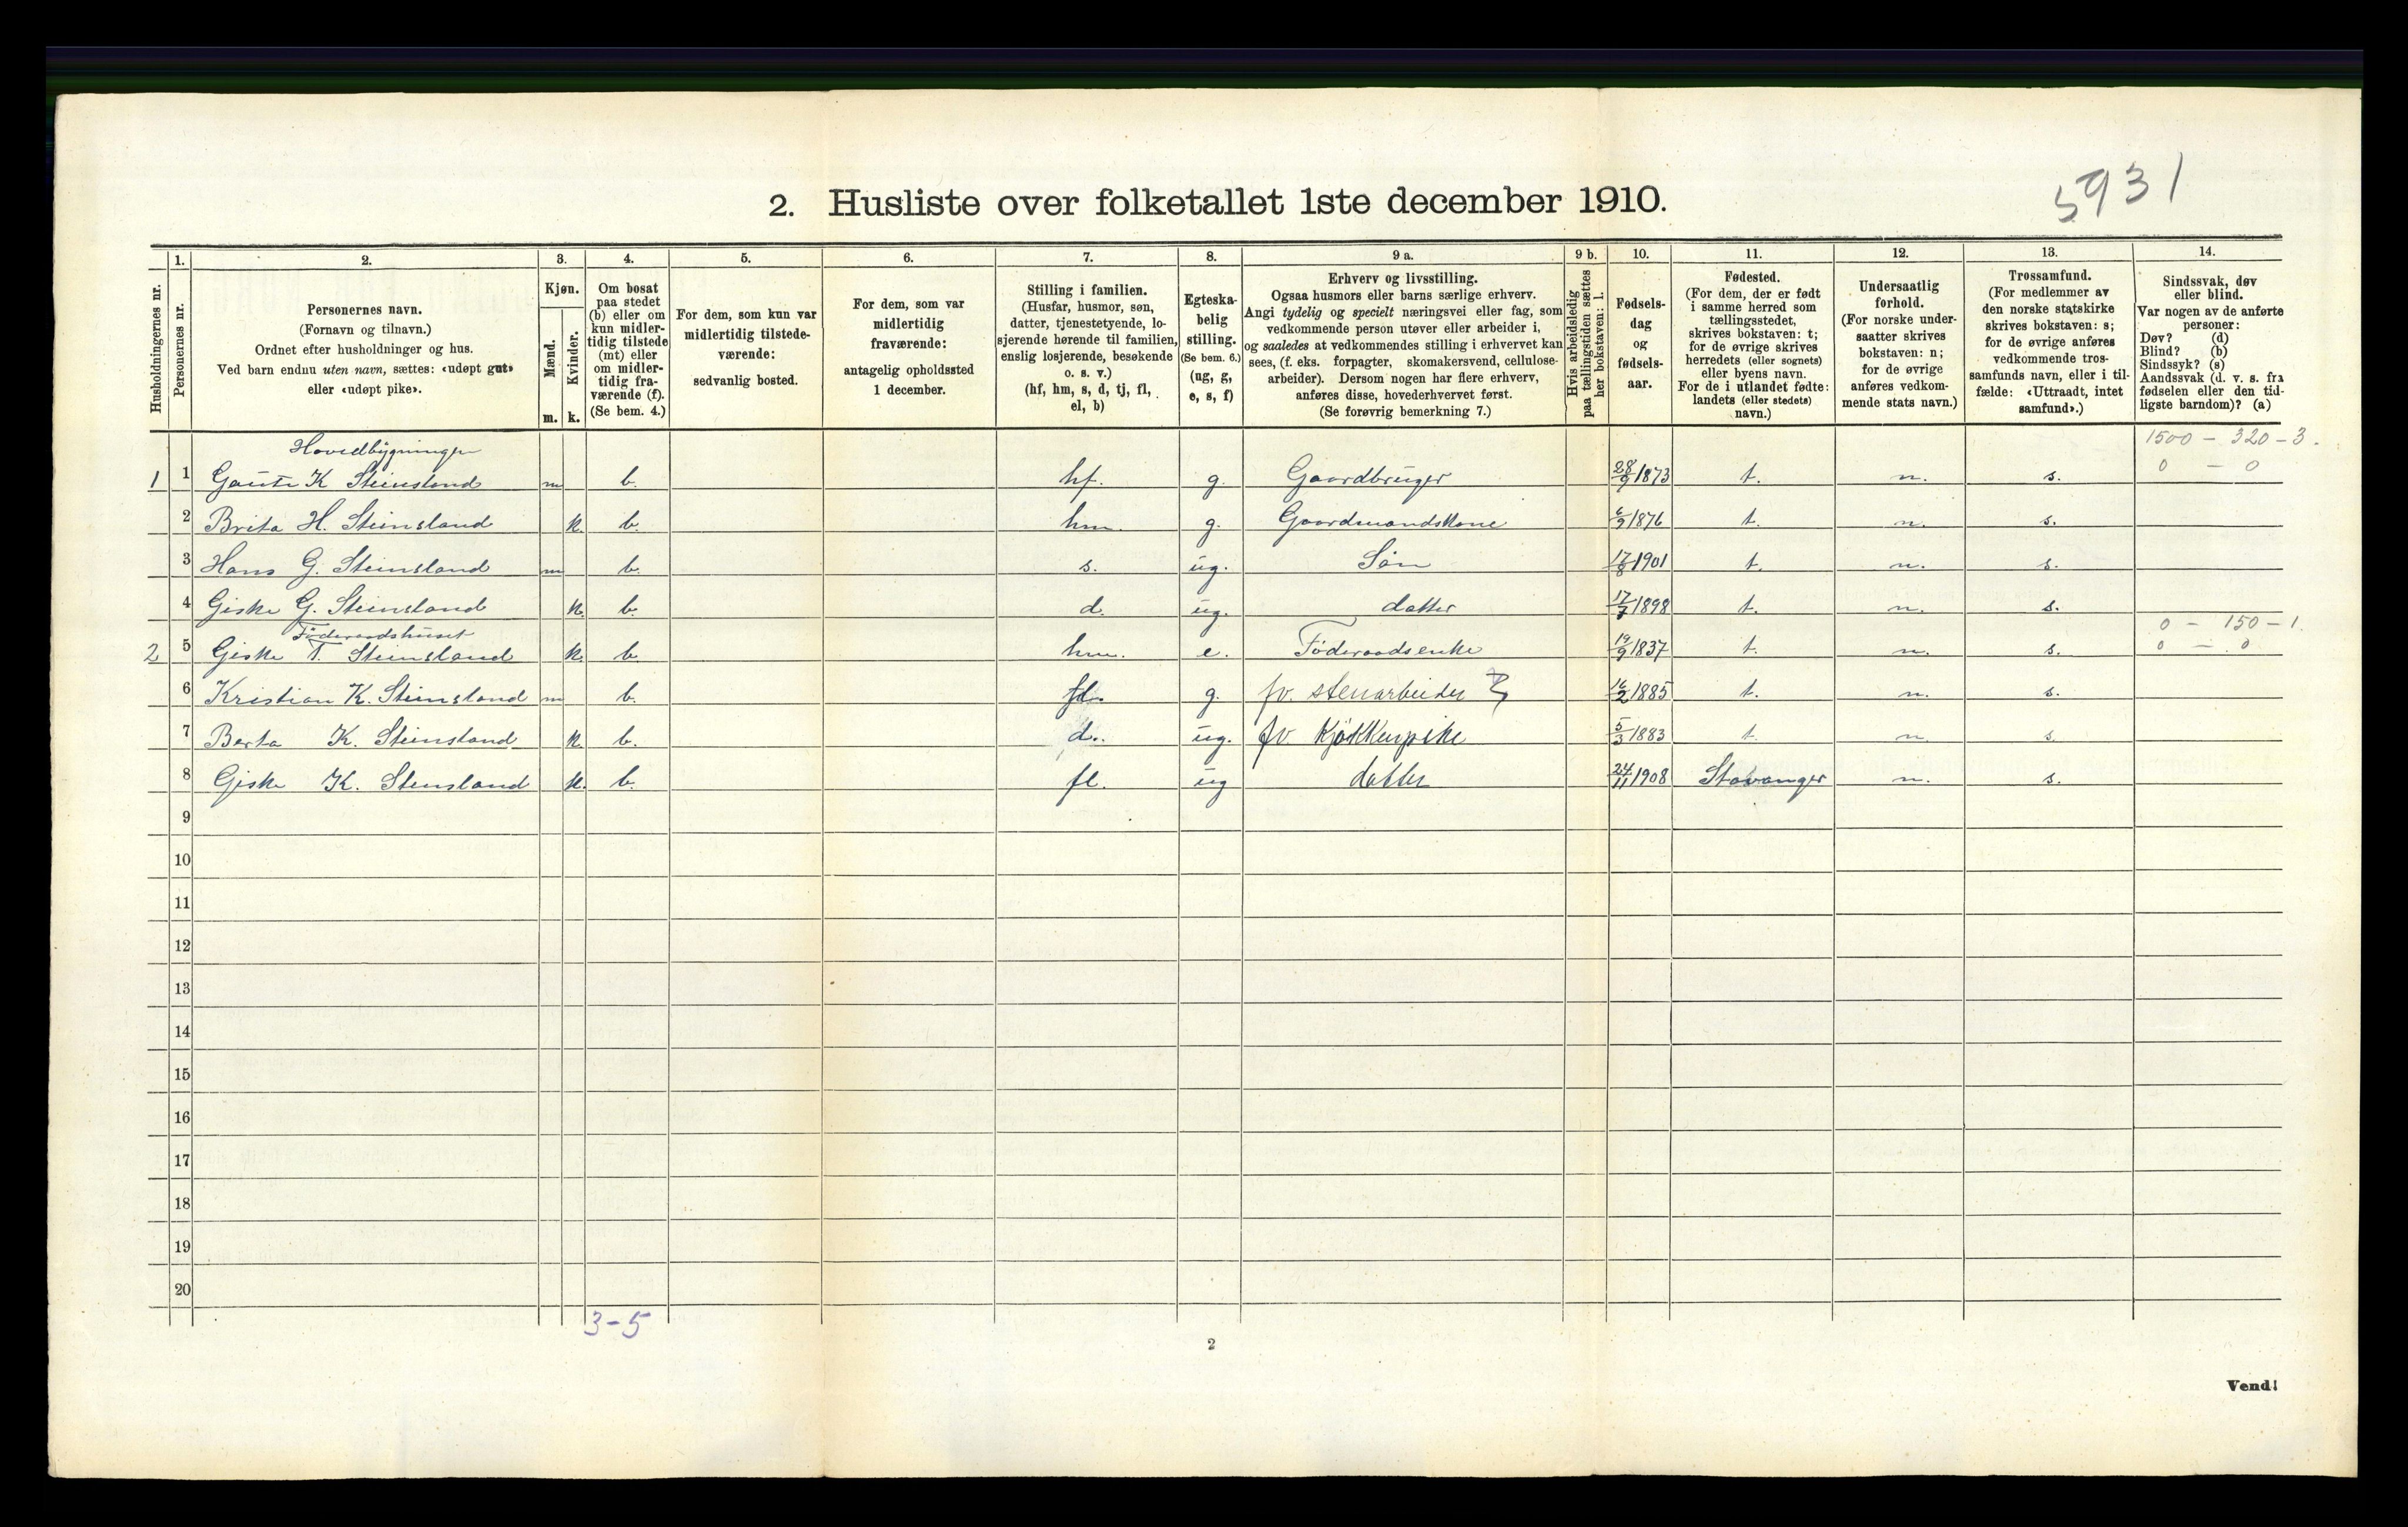 5931
2. Husliste over folketallet 1ste december 1910.
Husholdningernes nr.
1.
Personernes nr.
2.
Personernes navn.
(Fornavn og tilnavn.)
Ordnet efter husholdninger og hus.
Ved barn endnu uten navn, sættes: «udøpt gut»
eller «udøpt pike».
3.
Kjøn.
Mænd.
m.
Kvinder.
k.
4.
Om bosat
paa stedet
(b) eller om
kun midler-
tidig tilstede
(mt) eller
om midler-
tidig fra-
værende (f).
(Se bem. 4.)
5.
For dem, som kun var
midlertidig tilstede-
værende:
sedvanlig bosted.
6.
For dem, som var
midlertidig
fraværende:
antagelig opholdssted
1 december.
7.
Stilling i familien.
(Husfar, husmor, søn,
datter, tjenestetyende, lo-
sjerende hørende til familien,
enslig losjerende, besøkende
o. s. v.)
(hf, hm, s, d, tj, fl,
el, b)
8.
Egteska-
belig
stilling.
(Se bem. 6.)
(ug, g,
e, s, f)
9 a.
Erhverv og livsstilling.
Ogsaa husmors eller barns særlige erhverv.
Angi tydelig og specielt næringsvei eller fag, som
vedkommende person utøver eller arbeider i,
og saaledes at vedkommendes stilling i erhvervet kan
sees, (f. eks. forpagter, skomakersvend, cellulose-
arbeider). Dersom nogen har flere erhverv,
anføres disse, hovederhvervet først.
(Se forøvrig bemerkning 7.)
9 b.
Hvis arbeidsledig
paa tællingstiden sættes
her bokstaven: l.
10.
Fødsels-
dag
og
fødsels-
aar.
11.
Fødested.
(For dem, der er født
i samme herred som
tællingsstedet,
skrives bokstaven: t;
for de øvrige skrives
herredets (eller sognets)
eller byens navn.
For de i utlandet fødte:
landets (eller stedets)
navn.)
12.
Undersaatlig
forhold.
(For norske under-
saatter skrives
bokstaven: n;
for de øvrige
anføres vedkom-
mende stats navn.)
13.
Trossamfund.
(For medlemmer av
den norske statskirke
skrives bokstaven: s;
for de øvrige anføres
vedkommende tros-
samfunds navn, eller i til-
fælde: «Uttraadt, intet
samfund».)
14.
Sindssvak, døv
eller blind.
Var nogen av de anførte
personer:
Døv? (d)
Blind? (b)
Sindssyk? (s)
Aandssvak (d. v. s. fra
fødselen eller den tid-
ligste barndom)? (a)
1500 - 320 - 3.
Hovedbygningen
1 1 Gaute K Steinsland m b. hf. g. Gaardbruger 28/9 1873 t. n. s. 0 - 0
2 Brita H. Steinsland k. b. hm. g. Gaardmandskone 6/9 1876 t. n. s.
3 Hans G. Steinsland m b. s. ug. Søn 17/8 1901 t. n. s.
4 Giske G. Steinsland k. b. d. ug. datter 17/7 1898 t. n. s.
0 - 150 - 1.
Føderaadshuset
2 5 Giske T. Steinsland k. b. hm. e. Føderaadsenke 19/9 1837 t. n. s. 0 - 0
6 Kristian K. Steinsland m b. g. fv. stenarbeider 16/2 1885 t. n. s.
7 Berta K. Steinsland k. b. d. ug. fv. Kjøkkenpike 5/3 1883 t. n. s.
8 Giske K. Stensland k. b. fl. ug datter 24/11 1908 Stavanger n. s.
9
10
11
12
13
14
15
16
17
18
19
20
3-5
2
Vend!